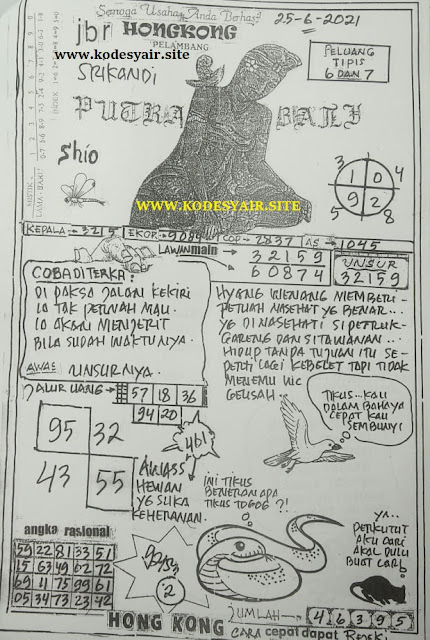 Semoga Usaha Anda Berhasil
25-6-2021
jbr HONGKONG
PELAMBANG
www.kodesyair.site
SRIKANDI
PELUANG
TIPIS
6 DAN 7
PUTRA BALI
Shio
WWW.KODESYAIR.SITE
3 1 0 4
9 2
5 8
KEPALA → 3215 EKOR → 9084 COP → 2837 AS → 1045
LAWAN main
32159
60874
UNSUR
32159
COBA DITERKA:
DI PAKSA JALAN KEKIRI
IA TAK PERNAH MAU.
IA AKAN MENJERIT
BILA SUDAH WAKTUNYA.
AWAS UNSURNYA.
HYANG WENANG MEMBERI
PETUAH NASEHAT YG BENAR...
YG DI NASEHATI SI PETRUK
GARENG DAN SITAWANAN...
HIDUP TANPA TUJUAN ITU SE-
PERTI LAGI KEBELET TAPI TIDAK
MENEMU WC
GELISAH...
JALUR UANG → 57 18 36
94 20
461
95 32
43 55
AWASS
HEWAN
YG SUKA
KEHERANAN.
TIKUS...KAU
DALAM BAHAYA
CEPAT KAU
SEMBUNYI
INI TIKUS
BENERAN APA
TIKUS TOGOG ?!
YA...
PERKUTUT
AKU CARI
AKAL DULU
BUAT LARI!
angka rasional
59 22 81 33 51
15 63 49 02 72
69 11 75 99 61
05 34 73 23 42
2
HONG KONG
JUMLAH → 4 6 3 9 5
CARA cepat dapat Rezeki